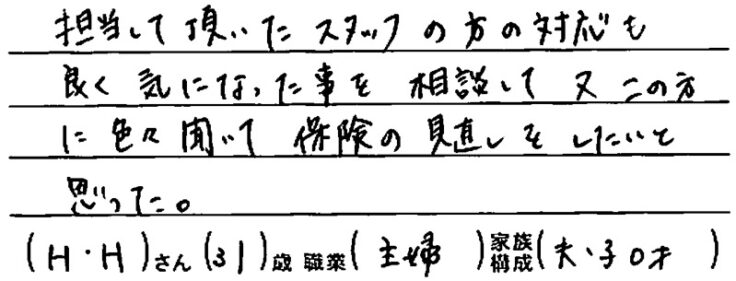 担当して頂いた スタッフ の 方 の 対応も
良く 気になった事を 相談して 又 この方
に 色々 聞いて 保険の 見直しを したいと
思った。
(H・H)さん(31)歳 職業(主婦)家族構成(夫・子0才)